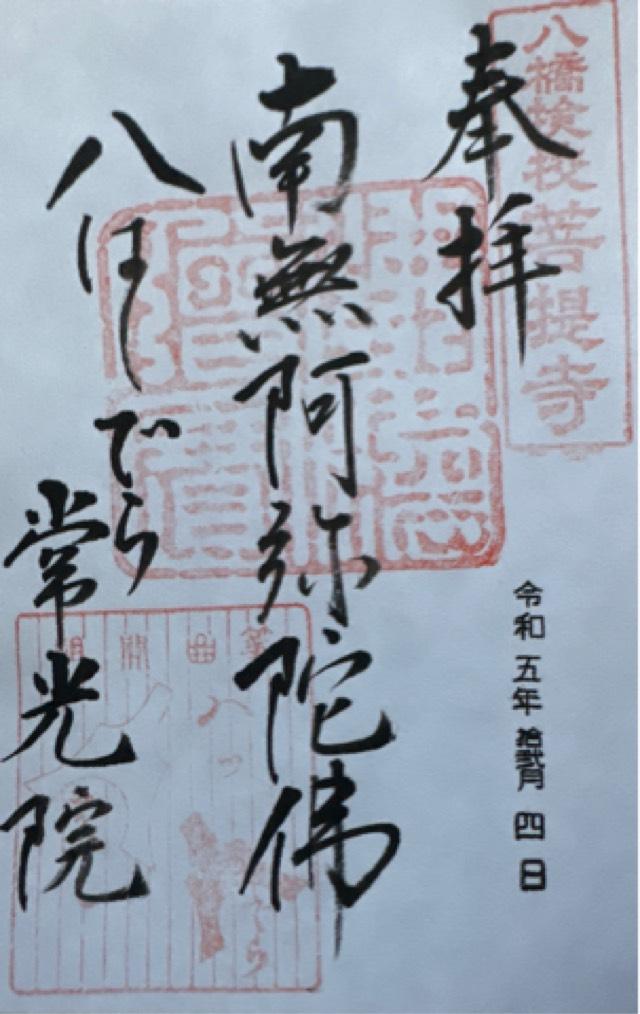 八橋検校菩提寺
奉拝
令和五年拾弐月四日
南無阿弥陀佛
八はしでら
常光院